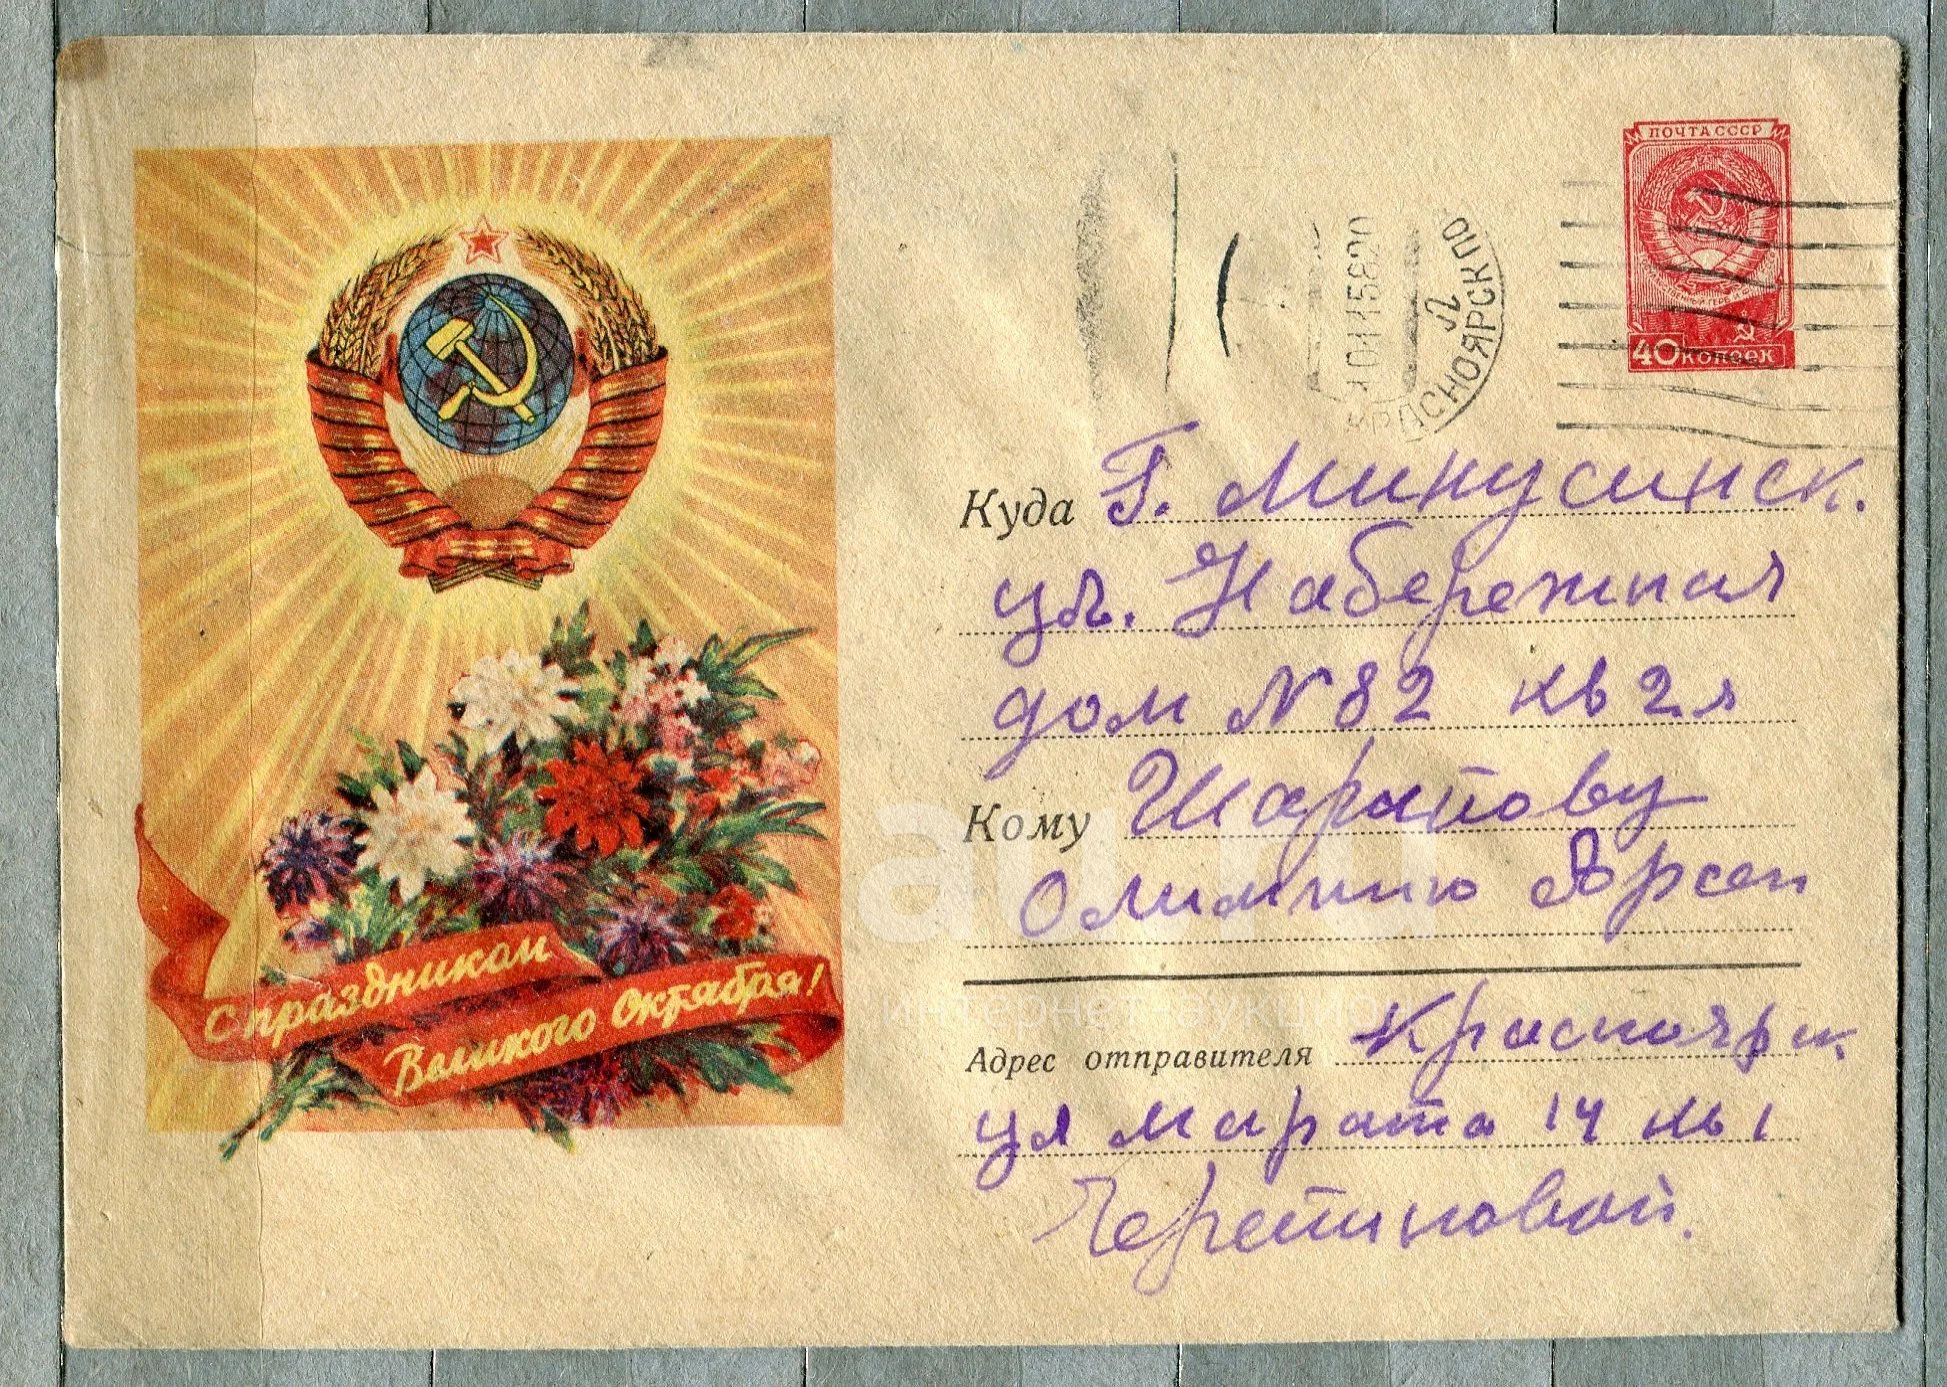 С праздником
Великого Октября!
ПОЧТА СССР
40 копеек
КРАСНОЯРСК ПО
Куда Г. Минусинск.
ул. Набережная
дом N 82 кв 2я
Кому Шарапову
Олимпию Ярсен
Адрес отправителя Красноярск
ул Марата 14 кв 1
Черепиновой.
au.ru
интернет-аукцион